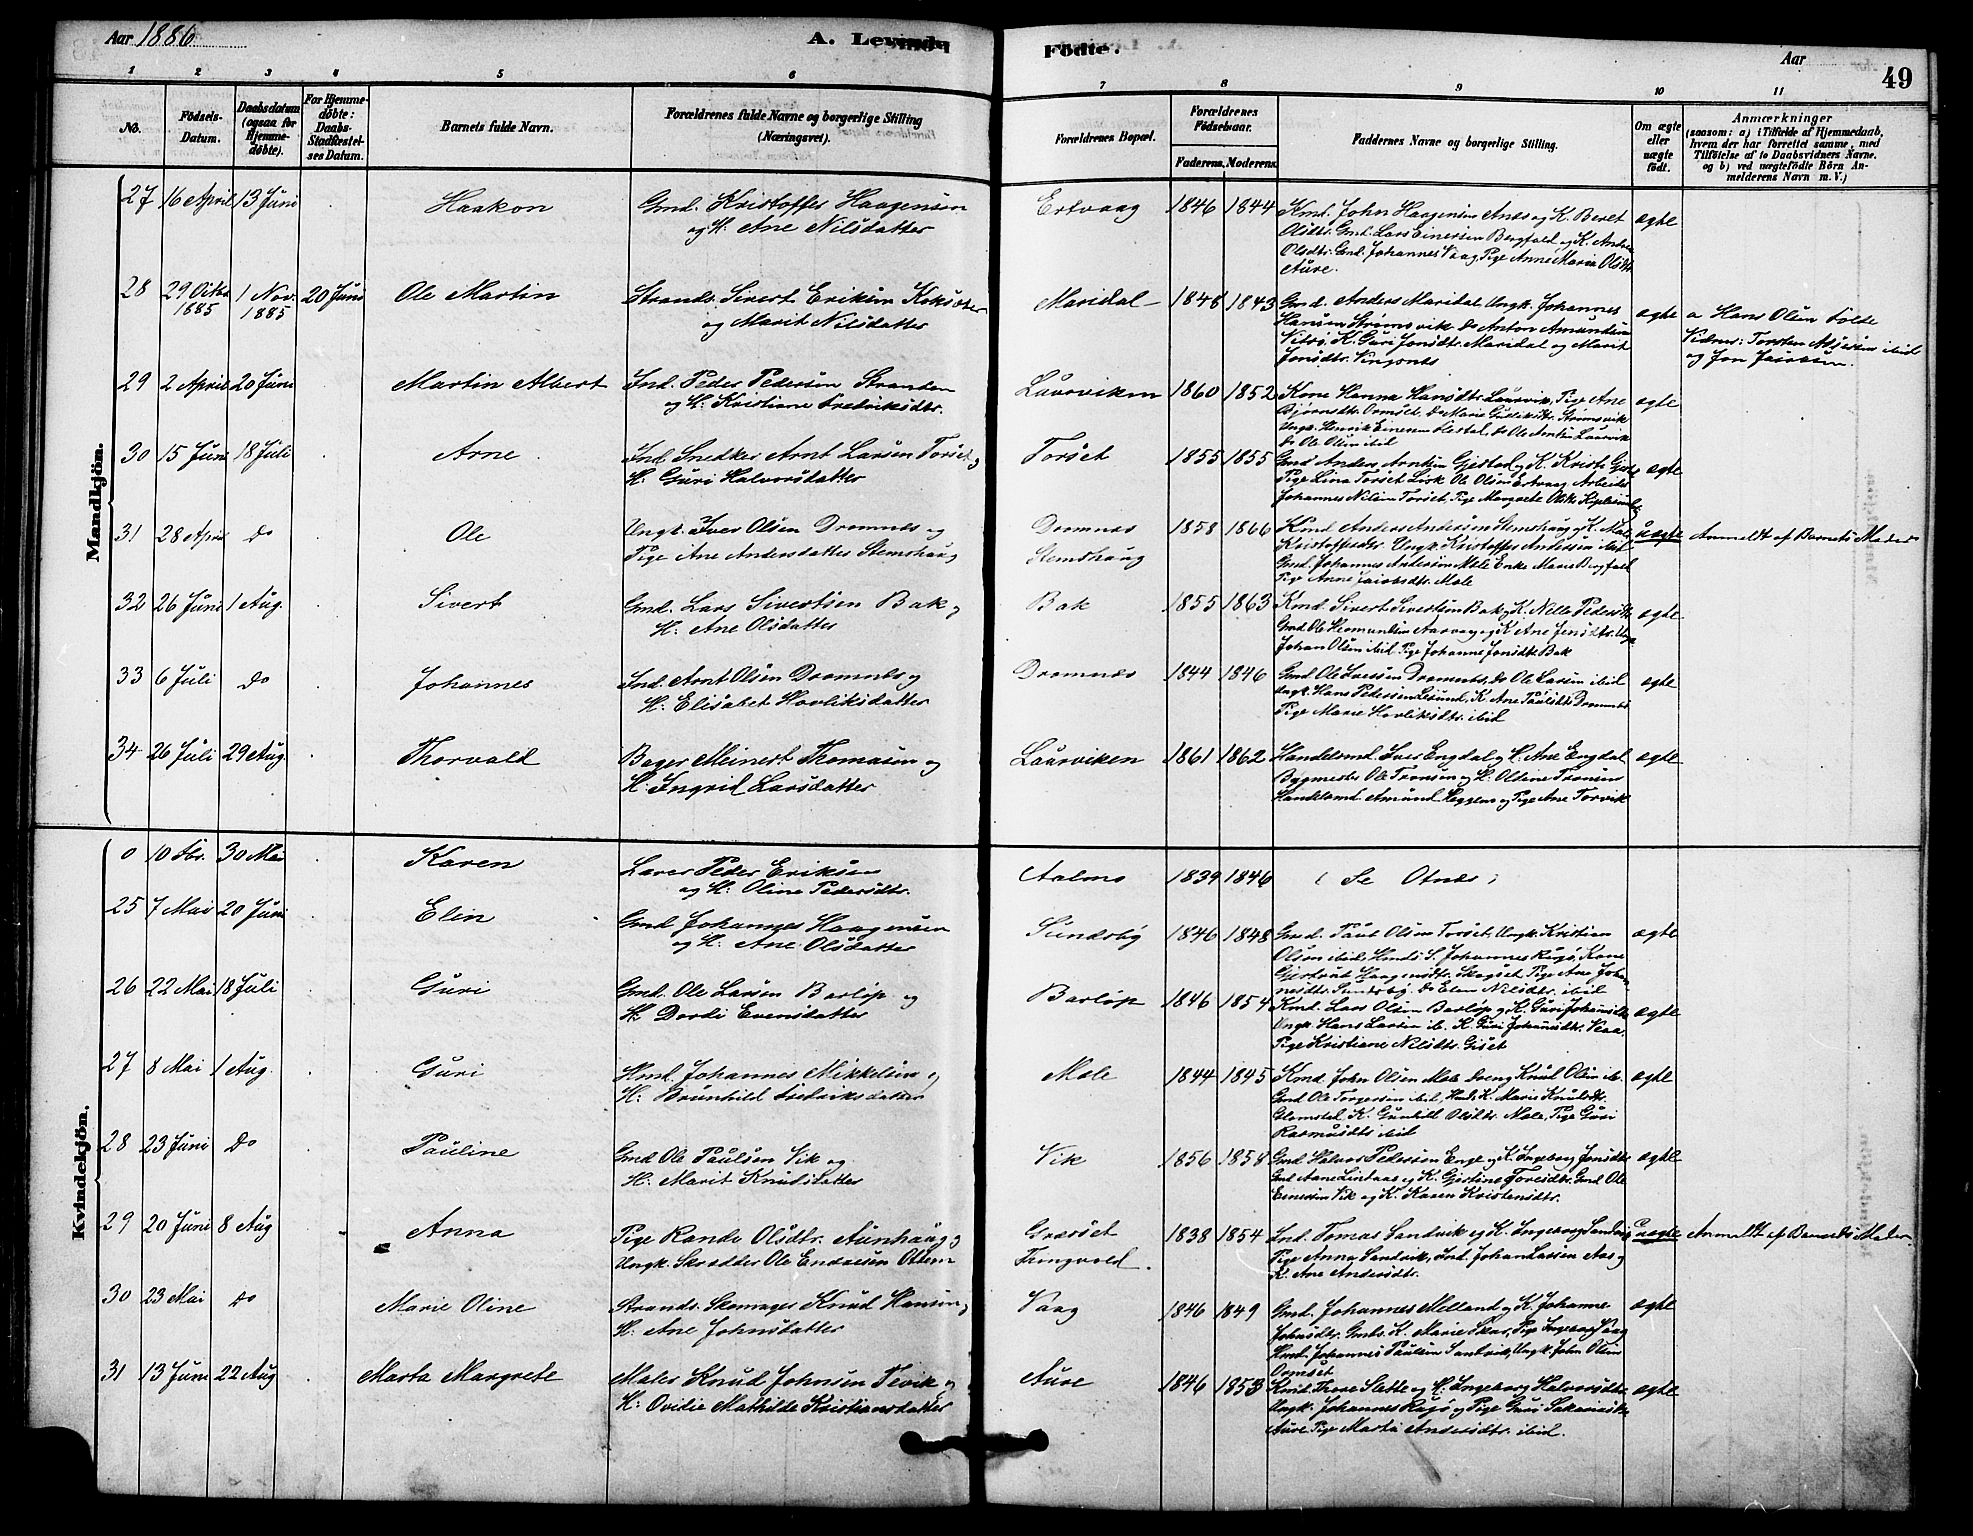 Aar 1886
A. Levende
Födte.
Aar
49
1 2 3 4 5 6 7 8 9 10 11
No.
Födsels-
Datum.
Daabsdatum
(ogsaa for
Hjemme-
døbte).
For Hjemme-
døbte:
Daabs-
Stadfæstel-
ses Datum.
Barnets fulde Navn.
Forældrenes fulde Navne og borgerlige Stilling
(Næringsvei).
Forældrenes Bopæl.
Forældrenes
Födselsaar.
Faderens. Moderens.
Faddernes Navne og borgerlige Stilling.
Om ægte
eller
uægte
født.
Anmærkninger
(saasom: a) i Tilfælde af Hjemmedaab,
hvem der har forrettet samme, med
Tilføielse af to Daabsvidners Navne,
og b) ved uægtefödte Börn An-
melderens Navn m. V.)
Mandkjön.
27 16 April 13 Juni Haakon Gmd. Kristoffer Haagensen
og H. Ane Nilsdatter
Ertvaag 1846 1844 Kmd. John Haagensen Anes og K. Beret
Olsdtr. Gmd. Lars Einersen Bergfald og K. Andrea
Olsdtr. Gmd. Johannes Vaag, Pige Anne Maria Olsdtr.
Aure. ægte
28 29 Oktbr 1885 1 Nov. 1885 20 Juni Ole Martin Strands. Sivert Eriksen
og Marit Nilsdatter
Maridal 1848 1843 Gmd. Anders Maridal, Ungk. Johannes
Hansen Strømsvik, Do Anton Amundsen
K. Guri Jonsdtr. Maridal og Marit
Jonsdtr. Vingsnes ægte a Hans Olsen Tolte
Vidner: Torsten ibid
og Jon
29 2 April 20 Juni Martin Albert Ind. Peder Pedersen Stranden
og H. Kristiane Fredriksdtr.
Laurviken 1860 1852 Kone Hanna Hansdtr. Laurvik, Pige Ane
Bjørnsdtr. Ormset, Do Marie Strømsvik
Ungk. Henrik Einersen Do Ole Laurvik
Do Ole Olsen ibid ægte
30 15 Juni 18 Juli Arne Ind. Snedker Arnt Larsen Torset og
H. Guri Halvorsdatter
Torset 1855 1855 Gmd Anders Arntsen Gjestad og K. Kristi
Pige Lina Torset Ole Olsen Ertvaag Arbeider
Johannes Nilsen Torset, Pige Margrete ægte
31 28 April Do Ole Ungk. Iver Olsen Dromnes og
Pige Ane Andersdatter Stemshaug
Dromnes
Stemshaug
1858 1866 Kmd Anders Andersen Stemshaug og K. Male
Kristoffersdtr. Ungk. Kristoffer Andersen ibid
Gmd. Johannes Andersen Mole Enke Marie Bergfald
Pige Anne Jacobsdtr. Mole uægte Anmeldt af Barnets Moder
32 26 Juni 1 Aug. Sivert Gmd. Lars Sivertsen Bak og
H. Ane Olsdatter
Bak 1855 1863 Kmd. Sivert Sivertsen Bak og K. Nille Pedersdtr
Gmd Ole Hermundsen Aarvaag og K Ane Jonsdtr. Ungk
Johan Olsen ibid Pige Johanne Jonsdtr Bak ægte
33 6 Juli Do Johannes Ind. Arnt Olsen Dromnes og
H. Elisabet Hovliksdatter
Dromnes 1844 1846 Gmd Ole Iversen Dromnes, Do Ole Larsen ibid
Ungk. Hans Pedersen Lesund, K. Ane Paulsdtr Dromnes
Pige Marie Hovliksdtr. ibid ægte
34 26 Juli 29 Aug. Thorvald Bager Meinert Thomasen og
H. Ingrid Larsdatter
Laurviken 1861 1862 Handelsmd. Iver Engdal og H. Ane Engdal
Bygmester Ole Tronsen og H. Oldine Tronsen
Handelsmd. Amund Heggem og Pige Ane Torvik ægte
Kvindekjön.
0 10 Fbr. 30 Mai Karen Lærer Peder Eriksen
og H. Oline Pedersdtr.
Aalmo 1839 1846 (Se Otnes)
25 7 Mai 20 Juni Elin Gmd Johannes Haagensen
og H. Ane Olsdatter
Sundsby 1846 1848 Gmd. Paul Olsen Torset, Ungk. Kristian
Olsen ibid, S. Johannes Rugø, Kone
Gjertrud Haagensdtr. Skogset Pige Ane Johan-
nesdtr. Sundsby, Do Elen Nilsdtr. ibid ægte
26 22 Mai 18 Juli Guri Gmd. Ole Larsen Barløp og
H. Dordi Evensdatter
Barløp 1846 1854 Kmd. Lars Olsen Barløp og K. Guri Johansdtr
Ungk. Hans Larsen ib. K. Guri Johansdtr.
Pige Kristiane Nilsdtr. Giset ægte
27 8 Mai 1 Aug. Guri Hmd. Johannes Mikkelsen og
H. Brunhild Frederiksdatter
Mole 1844 1845 Kmd. John Olsen Mole Dreng Knud Olsen ib.
Gmd Ole Torgersen ibid, K. Marie Knudsdtr.
Glomstad K. Gunhild Olsdtr. Mole, Pige Guri
Rasmusdtr ibid ægte
28 23 Juni Do Pauline Gmd Ole Paulsen Vik og
H. Marit Knudsdatter
Vik 1856 1858 Gmd Halvor Pedersen Enge og K. Ingeborg Jonsdtr
Gmd Arne Lintaas og K. Gjertine Toresdtr. Gmd Ole
Einersen Vik og K. Karen Kristensdtr. ægte
29 20 Juni 8 Aug Anna Pige Randi Olsdtr. Aunhaug og
Ungk. Skrædder Ole Endresen Ottem
Græset
Tingvold.
1838 1854 Ind. Tomas Sandvik og K. Ingeborg Sandvik
Pige Anna Sandvik, Ind. Johan Larsen Aas og
K. Ane Andersdtr. uægte Anmeldt af Barnets Moder.
30 23 Mai Do Marie Oline Strands. Skomager Knud Hansen og
H. Ane Johnsdatter
Vaag 1846 1849 Gmd. Johannes Melland og K. Johanne
Johnsdtr. Gmds. K. Marie Skar, Pige Ingeborg Vaag
Hmd. Johannes Paulsen Sandvik, Ungk. John Olsen
Ormset ægte
31 13 Juni 22 Aug Marta Margrete Maler Knud Johnsen Tevik og
H. Ovidie Mathilde Kristiansdatter
Aure 1846 1853 Kmd. Thore Slette og H. Ingeborg Halvorsdtr
Ungk. Johannes Rugø og Pige Guri Sakariasdtr
Aure Pige Marta Andersdtr. ibid. ægte